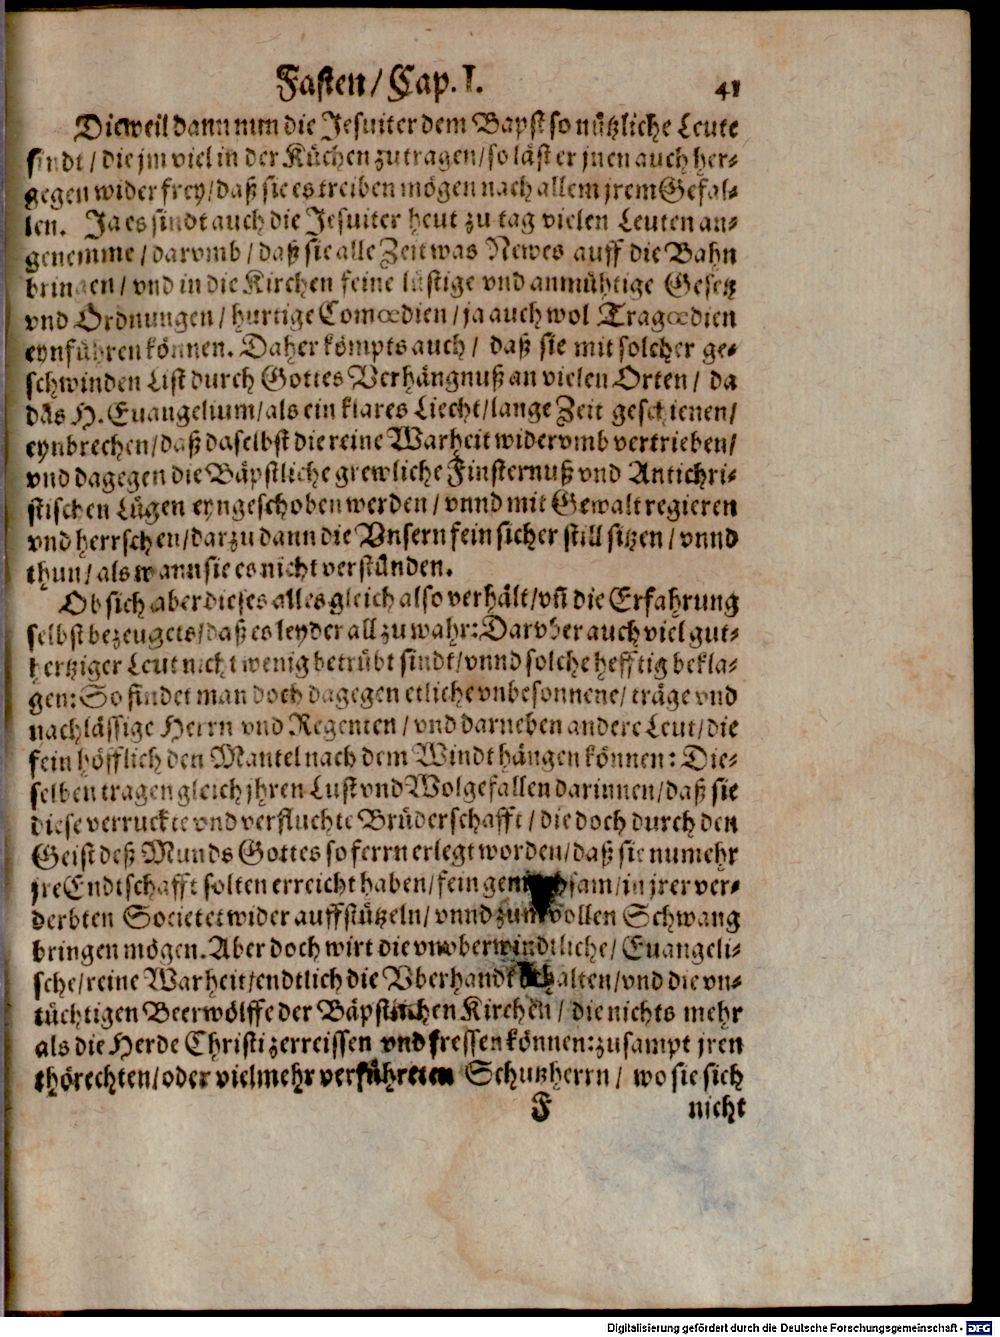 Fasten/ Cap. I. 41
Dieweil dann nun die Jesuiter dem Bapst so nützliche Leute
sindt / die jm viel in der Küchen zutragen/ so läst er jnen auch her-
gegen wider frey/ daß sie es treiben mögen nach allem jrem Gefal-
len. Ja es sindt auch die Jesuiter heut zu tag vielen Leuten an-
genemme / darvmb / daß sie alle Zeit was Newes auff die Bahn
bringen / vnd in die Kirchen feine lustige vnd anmühtige Gesetz
vnd Ordnungen / hurtige Comœdien / ja auch wol Tragœdien
eynführen können. Daher kömpts auch / daß sie mit solcher ge-
schwinden List durch Gottes Verhängnuß an vielen Orten / da
das H. Euangelium/ als ein klares Liecht/ lange Zeit geschienen/
eynbrechen/ daß daselbst die reine Warheit widervmb vertrieben/
vnd dagegen die Bäpstliche grewliche Finsternuß vnd Antichri-
stischen Lügen eyngeschoben werden / vnnd mit Gewalt regieren
vnd herrschen/ darzu dann die Vnsern fein sicher still sitzen / vnnd
thun/ als wann sie es nicht verstünden.
Ob sich aber dieses alles gleich also verhält/ vñ die Erfahrung
selbst bezeugets/ daß es leyder all zu wahr: Darvber auch viel gut-
hertziger Leut nicht wenig betrübt sindt/ vnnd solche hefftig bekla-
gen: So findet man doch dagegen etliche vnbesonnene/ träge vnd
nachlässige Herrn vnd Regenten / vnd darneben andere Leut/ die
fein höfflich den Mantel nach dem Windt hängen können: Die-
selben tragen gleich jhren Lust vnd Wolgefallen darinnen/ daß sie
diese verruckte vnd verfluchte Brüderschafft / die doch durch den
Geist deß Munds Gottes so ferrn erlegt worden/ daß sie numehr
jre Endtschafft solten erreicht haben/ fein gemachsam/ in jrer ver-
derbten Societet wider auffstützeln/ vnnd zum vollen Schwang
bringen mögen. Aber doch wirt die vnvberwindtliche/ Euangeli-
sche/ reine Warheit/ endtlich die Vberhandt behalten/ vnd die vn-
tüchtigen Beerwölffe der Bäpstischen Kirchen / die nichts mehr
als die Herde Christi zerreissen vnd fressen können: zusampt jren
thörechten/ oder vielmehr verführeten Schutzherrn / wo sie sich
F nicht
Digitalisierung gefördert durch die Deutsche Forschungsgemeinschaft - DFG